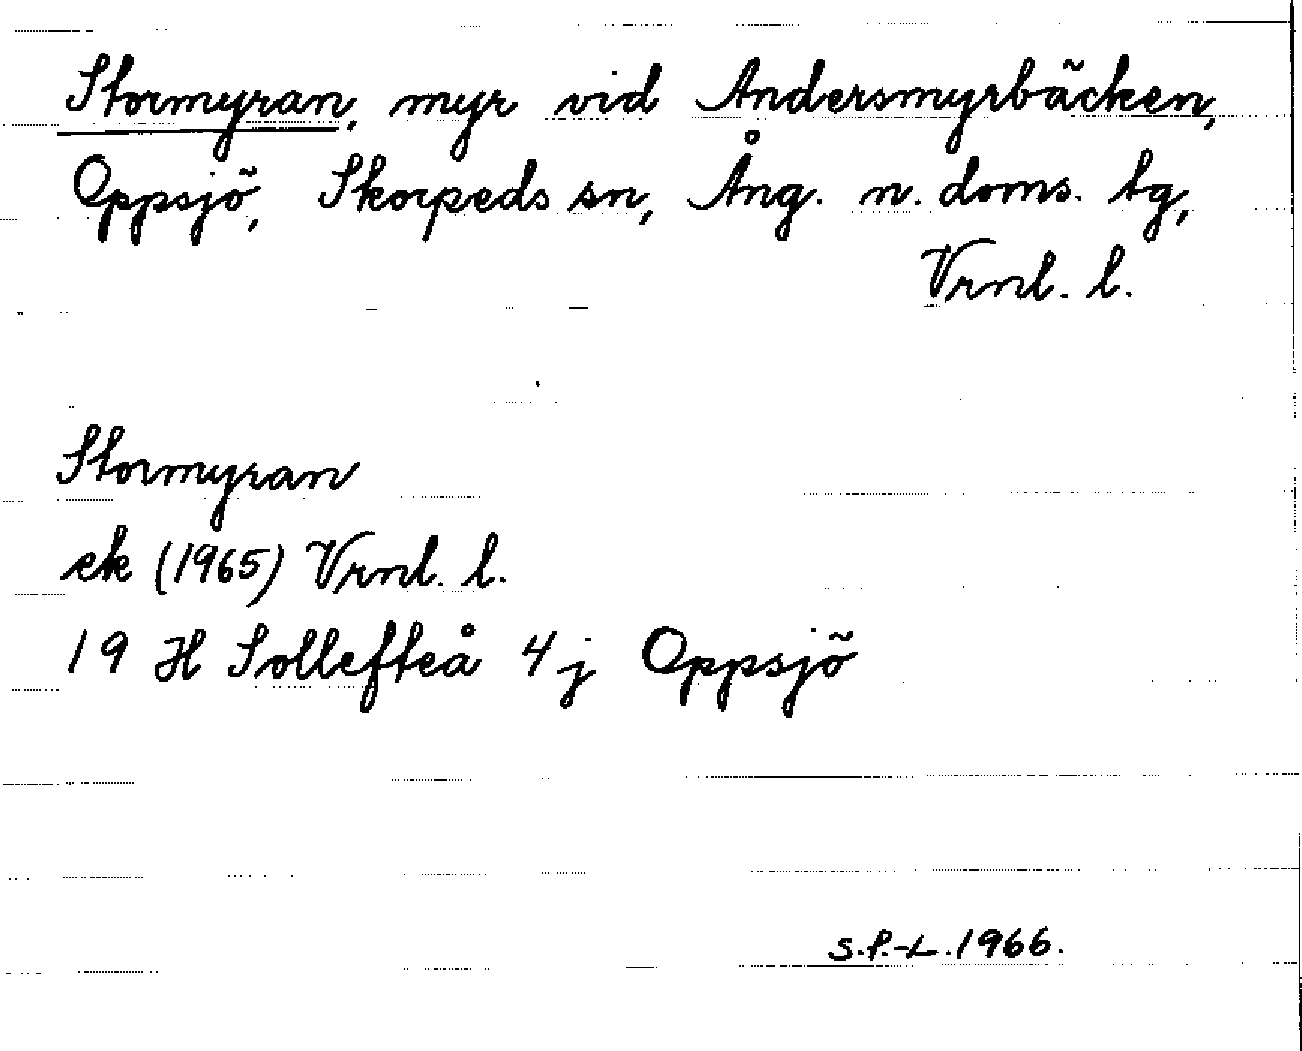 Stormyran, myr vid Andersmyrbäcken,
Oppsjö, Skorpeds sn, Ång. n. doms. tg,
Vrnl. l.
Stormyran
ek (1965) Vrnl. l.
19 H Sollefteå 4j Oppsjö
S.P.-L. 1966.